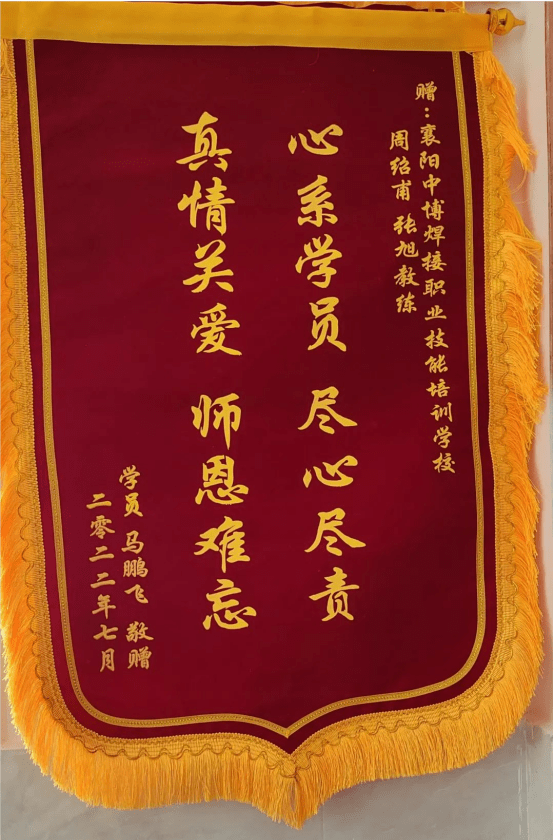 赠：襄阳中博焊接职业技能培训学校
周绍甫 张旭教练
心系学员 尽心尽责
真情关爱 师恩难忘
学员 马鹏飞 敬赠
二零二二年七月